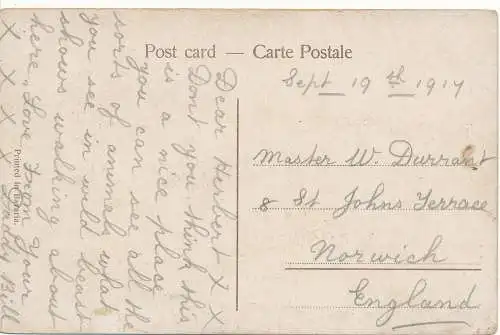 Post card — Carte Postale
Sept 19th 1917
Master W. Durrant
8 St Johns Terrace
Norwich
England
Dear Herbert X X
Dont you think this
is a nice place
you can see all the
sorts of animals what
you see in wild beast
shows walking about
here, Love From Your
X X X X Daddy Bill
Printed in Bavaria.